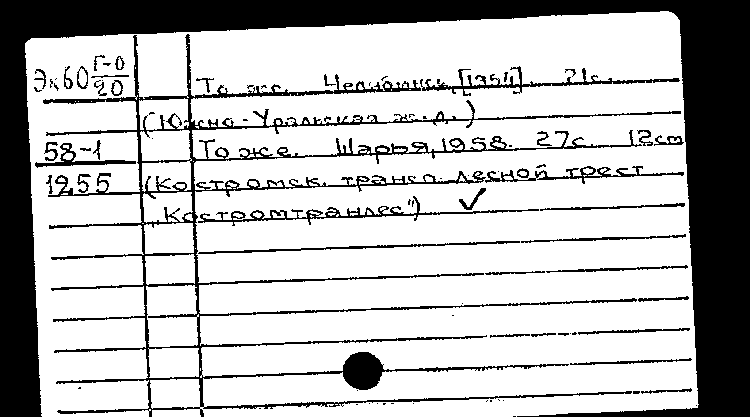 Эк60 Г-0/20 То же. Челябинск, [1954]. 21с.
(Южно-Уральская ж.д.)
58-1 То же. Шарья, 1958. 27с. 12см
1255 (Костромск. трансп. лесной трест
„Костромтранлес")